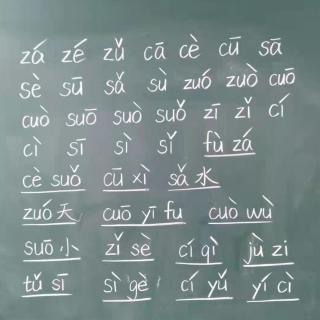 zá zé zǔ cā cè cū sā
sè sū sǎ sù zuó zuò cuō
cuò suō suò suǒ zī zǐ cí
cì sī sì sǐ fù zá
cè suǒ cū xì sǎ水
zuó天 cuō yī fu cuò wù
suō小 zǐ sè cí qì jù zi
tǔ sī sì gè cí yǔ yí cì